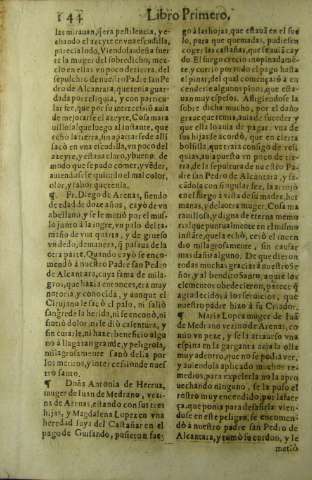 144 Libro Primero,
las mirauan, q̃ era pestilencia, y e-
chando el azeyte en vna escudilla,
parecia lodo. Viendo la dueña fue-
re la muger del sobredicho, mez-
clo en ellas vn poco de tierra, del
sepulchro de nuestro Padre san Pe-
dro de Alcantara, que tenia guar-
dada por reliquia, y con particu-
lar fee, que por su intercession auia
de mejorarse el azeyte, Cosa mara
uillosa! que luego al instante, que
echò la tierra, un apartarse de alli
sacò en vna escudilla, vn poco del
azeyte, y estaua claro, y bueno, de
modo que se pudo comer, y vẽder,
auiendosele quitado el mal color,
olor, y sabor, que tenia.
¶ Fr. Diego de Arenas, siendo
de edad de doze años, cayò de vn
abellano, y se le metiò por el mus-
lo junto à la ingre, vn palo del ta-
maño de vna quarta, y de grueso
vn dedo, de manera, q̃ passaua de la
otra parte. Quando cayò se enco-
mendò à nuestro Padre san Pedro
de Alcantara, cuya fama de mila-
gros, que hazia entonces, era muy
notoria, y conocida, y aunque el
Cirujano le sacò el palo, ni saliò
sangre de la herida, ni se enconò, ni
sintiò dolor, ni le diò calentura, y
sin curarle, ni hazer beneficio algu
no à llaga tan grande, y peligrosa,
milagrosamente sanò della por
los meritos, y intercession de nues-
tro santo.
¶ Doña Antonia de Herera,
muger de Iuan de Medrano, vezi-
na de Arenas, estando con sus tres
hijas, y Magdalena Lopez en vna
heredad suya del Castañar en el
pago de Guisando, pusieron fue-
go à las hojas, que estauã en el sue
lo, para que quemadas, pudiessen
coger las castañas, que se auiã cay
do. El fuego creciò inopinadamẽ-
te, y corriò por todo el pago hasta
el pinar, del qual començarõ à en
cenderse algunos pinos, que esta-
uan muy espesos. Afligieronse
sobre dicha mucho, por el daño
graue que temia, auia de suceder, y
que ella lo auia de pagar. vna de
sus hijas se acordò, que en cierta
bolsilla, que traia consigo de reli-
quias, auia puesto vn poco de tie-
rra, de la sepultura de nuestro Pa-
dre san Pedro de Alcantara, y sa-
cãdola con singular fee, la arrojò
en el fuego à vista de su madre, her
manas, y de la otra muger. Cosa ma
rauillosa, y digna de eterna memo
ria! que puntualmente en el mismo
instante, que la echò, cessò el incen
dio milagrosamente, sin causar
mas daño alguno. De que dieron
todas muchas gracias à nuestro Se
ñor, y al bendito Santo, a quien los
elementos obedecieron, parece q̃
agradecidos à los seruicios, que
nuestro padre hizo à su Criador.
¶ Maria Lopez muger de Iuã
de Medrano vezino de Arenas, co
miò vn peze, y se la atrauesò vna
espina en la garganta azia la olla
muy adentro, que no se podia ver,
y auiendola aplicado muchos re-
medios, para expelerla no la apro
uechando ninguno, se la puso el
rostro muy encendido, por la fuer
ça, que ponia para desasirla: vien-
dose en este peligro, se encomen-
dò à nuestro padre san Pedro de
Alcantara, y tomò su cordon, y le
metiò